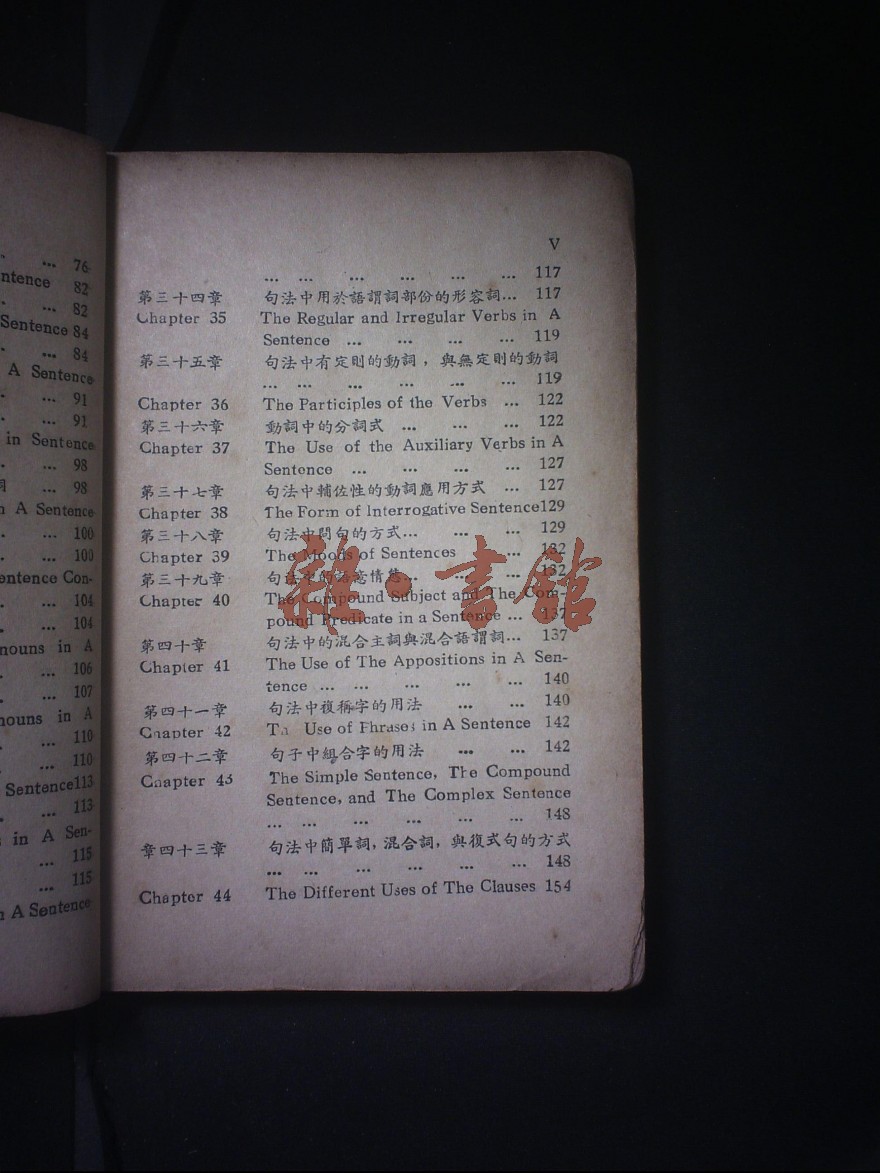 ... 76
ntence 82
... 82
Sentence 84
... 84
A Sentence
... 91
... 91
in Sentence
... 98
詞 ... 98
A Sentence
... 100
... 100
entence Con-
... 104
... 104
nouns in A
... 106
... 107
nouns in A
... 110
... 110
Sentence113
... 113
in A Sen-
... 115
... 115
A Sentence
V
... ... ... ... ... ... 117
第三十四章 句法中用於語謂詞部份的形容詞... 117
Chapter 35 The Regular and Irregular Verbs in A
Sentence ... ... ... ... 119
第三十五章 句法中有定則的動詞，與無定則的動詞
... ... ... ... ... ... 119
Chapter 36 The Participles of the Verbs ... 122
第三十六章 動詞中的分詞式 ... ... ... 122
Chapter 37 The Use of the Auxiliary Verbs in A
Sentence ... ... ... ... 127
第三十七章 句法中輔佐性的動詞應用方式 ... 127
Chapter 38 The Form of Interrogative Sentence129
第三十八章 句法中問句的方式... ... ... 129
Chapter 39 The Moods of Sentences ... 132
第三十九章 句法中的語意情態... ... ... 132
Chapter 40 The Compound Subject and The Com-
pound Predicate in a Sentence ... 137
第四十章 句法中的混合主詞與混合語謂詞... 137
Chapter 41 The Use of The Appositions in A Sen-
tence ... ... ... ... ... 140
第四十一章 句法中複稱字的用法 ... ... 140
Chapter 42 Th Use of Phrases in A Sentence 142
第四十二章 句子中組合字的用法 ... ... 142
Chapter 43 The Simple Sentence, The Compound
Sentence, and The Complex Sentence
... ... ... ... ... ... 148
章四十三章 句法中簡單詞，混合詞，與復式句的方式
... ... ... ... ... ... 148
Chapter 44 The Different Uses of The Clauses 154
雜·書館